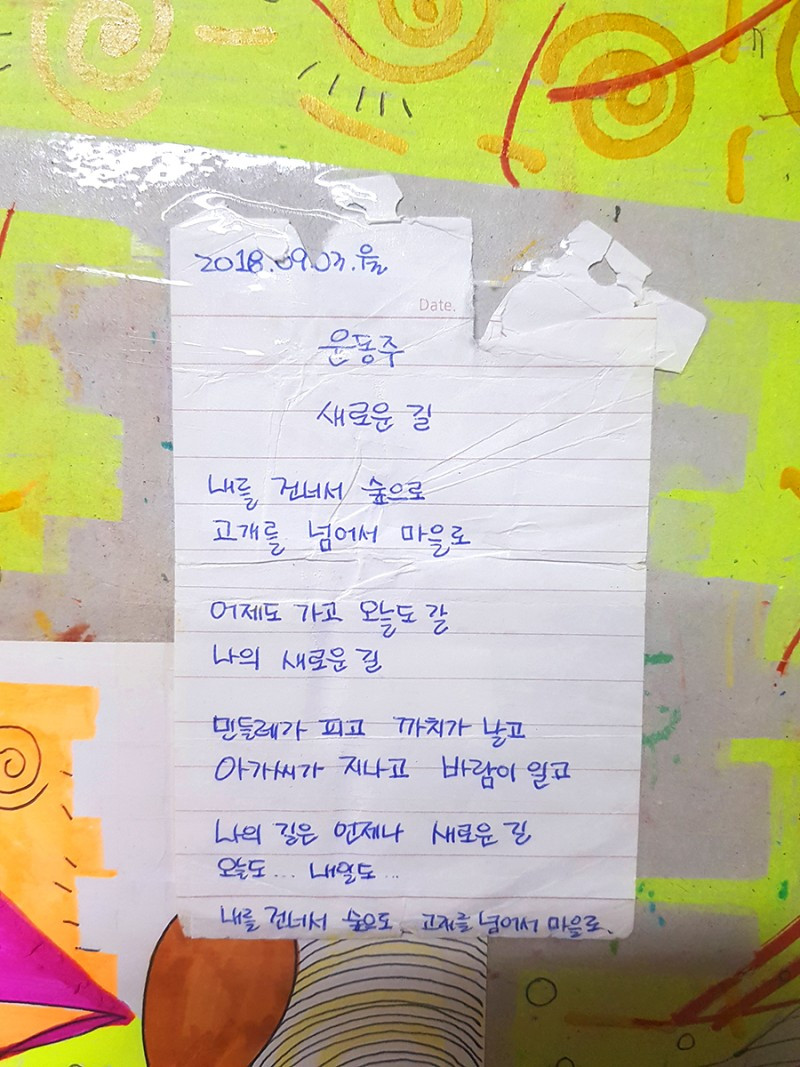 2018.09.03.월
Date.
윤동주
새로운 길
내를 건너서 숲으로
고개를 넘어서 마을로
어제도 가고 오늘도 갈
나의 새로운 길
민들레가 피고 까치가 날고
아가씨가 지나고 바람이 일고
나의 길은 언제나 새로운 길
오늘도... 내일도...
내를 건너서 숲으로 고개를 넘어서 마을로.